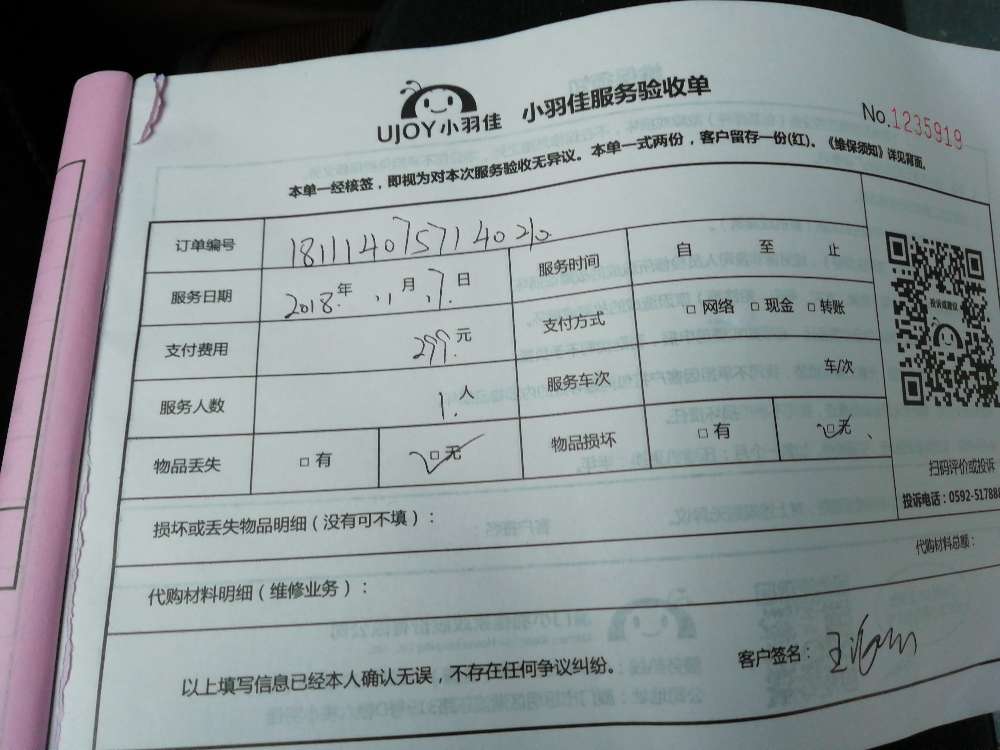 UJOY小羽佳 小羽佳服务验收单
No.1235919
本单一经核签，即视为对本次服务验收无异议。本单一式两份，客户留存一份(红)。《维保须知》详见背面。
订单编号 181114075714020
服务日期 2018年 11月 17日 服务时间 自 至 止
支付费用 299.元 支付方式 □ 网络 □ 现金 □ 转账
服务人数 1.人 服务车次 车/次
物品丢失 □ 有 □ 无 物品损坏 □ 有 □ 无
投诉或建议
扫码评价或投诉
投诉电话：0592-517888
损坏或丢失物品明细（没有可不填）：
代购材料明细（维修业务）： 代购材料总额：
以上填写信息已经本人确认无误，不存在任何争议纠纷。 客户签名：王